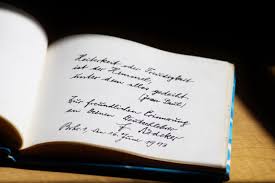 Heiterkeit oder Freudigkeit
ist der Himmel,
unter dem alles gedeiht.
(Jean Paul)
Zur freundlichen Erinnerung
an Deinen
F.
den 10. Juni 1948